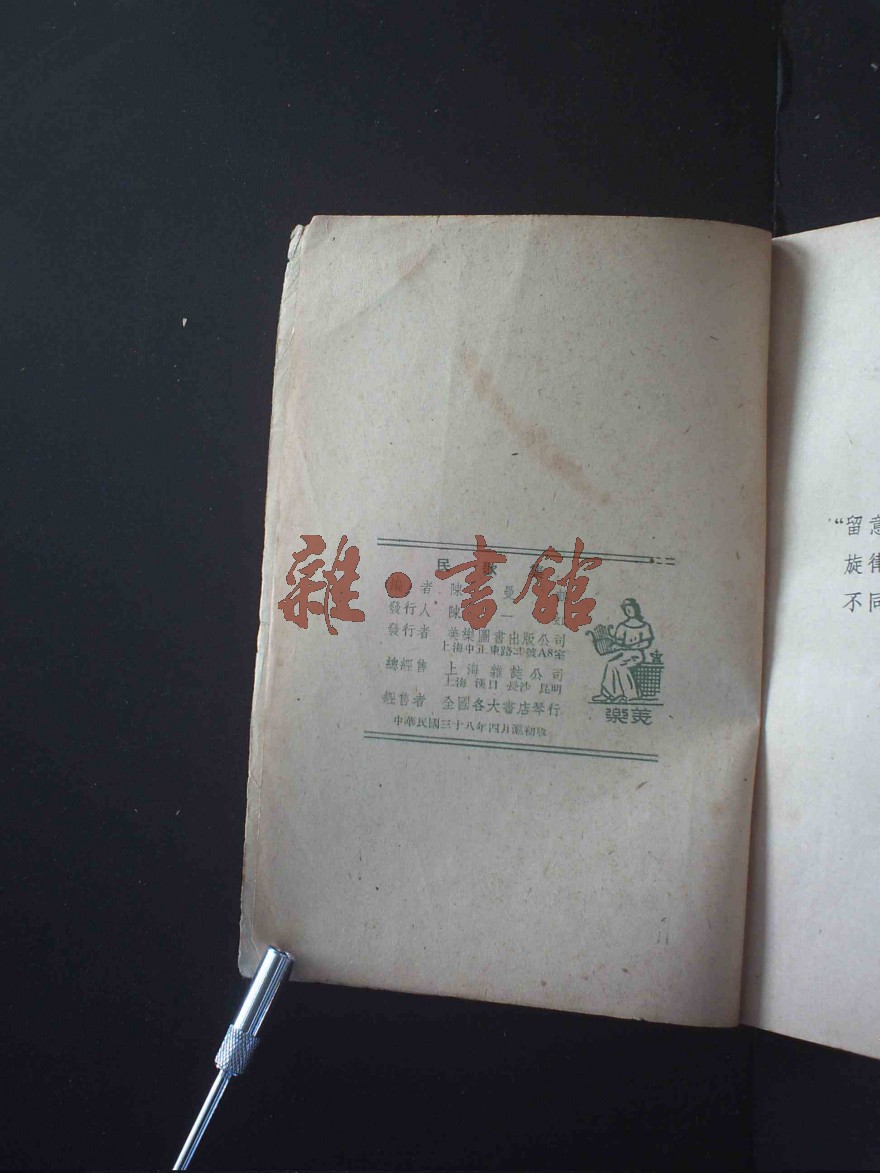 民歌
編者 陳 曼
發行人 陳 一
發行者 美樂圖書出版公司
上海中正東路 號A8室
總經售 上海雜誌公司
上海 漢口 長沙 昆明
經售者 全國各大書店琴行
中華民國三十八年四月滬初版
樂美
雜·書館
“留意
旋律
不同